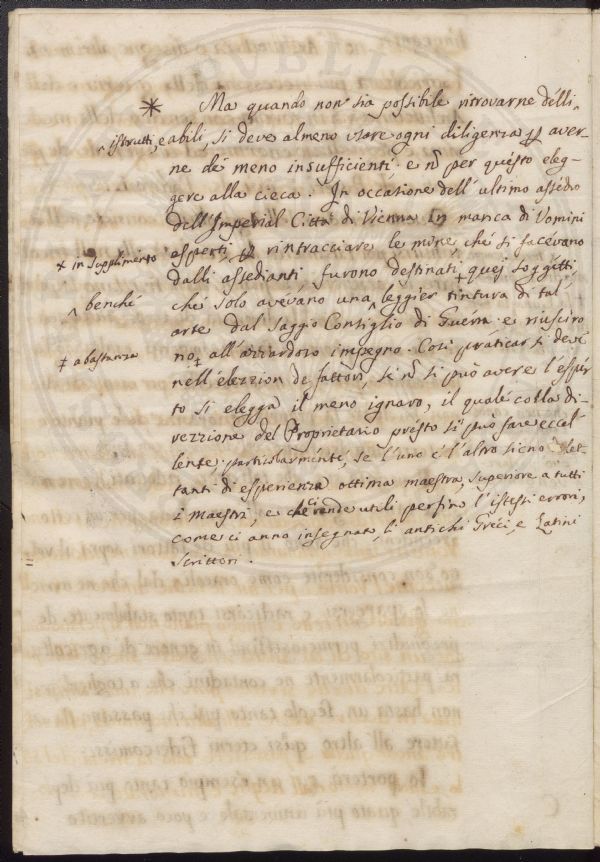 * Ma quando non sia possibile ritrovarne delli
^ istrutti, e abili, si deve almeno usare ogni diligenza p aver-
ne de meno insufficienti, e ñ per questo eleg-
gere alla cieca. In occasione dell'ultimo assedio
dell'Imperial Città di Vienna In manca di Uomini
+ in supplimento
esperti, + p rintracciare le mine, che si facevano
dalli assedianti furono destinati + quei soggetti,
^ benché
che solo avevano una ^ leggier tintura di tal'
arte dal saggio Consiglio di Guerra. e riusciro
‡ abastanza
no ‡ all'azzardoso impegno. Così praticar si deve
nell'elezzion de fattori, se ñ si può avere l'esper
to si elegga il meno ignaro, il quale colla di
rezzione del Proprietario presto si può fare eccel
lente, particolarménte, se l'uno e l'altro sieno dilet-
tanti di esperienza ottima maestra, superiore a tutti
i Maestri, e che ci rende utili persino l'istessi errori,
come ci anno insegnato, l'antichi Greci, e Latini
Scrittori.